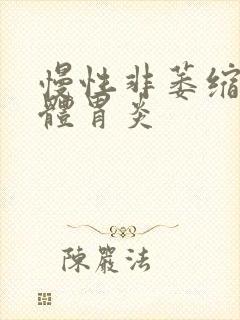 慢性非萎缩
體胃炎
陳嚴法